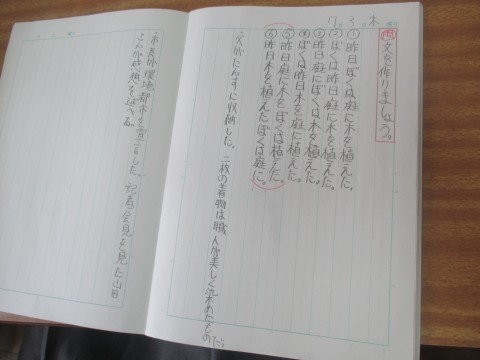 7.3.木 曜日
問 文を作りましょう。
①昨日ぼくは庭に木を植えた。
②ぼくは昨日庭に木を植えた。
③昨日庭にぼくは木を植えた。
④ぼくは昨日木を庭に植えた。
⑤昨日庭に木をぼくは植えた。
⑥昨日木を植えたぼくは庭に。
たんすに収納した。二枚の着物は職人が美しく染めたものだ。
市長は環境都市を宣言した。記者会見を見た山田
さんが感想を述べる。